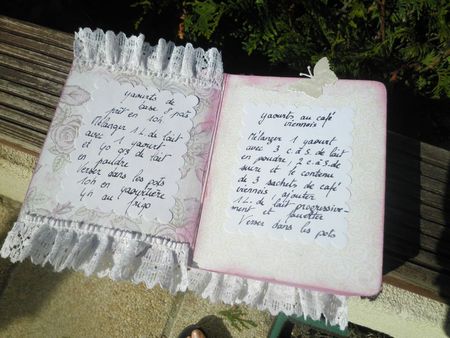 yaourts de
base 8 pots
prêt en 10h.
Mélanger 1 L de lait
avec 1 yaourt
et 40 grs de lait
en poudre
Verser dans les pots
10h en yaourtière
4h au frigo
yaourts au café
viennois
Mélanger 1 yaourt
avec 3 c.à.s. de lait
en poudre, 2 c.à.s de
sucre et le contenu
de 3 sachets de café
viennois ajouter
1 L. de lait progressive-
ment et fouetter
Verser dans les pots